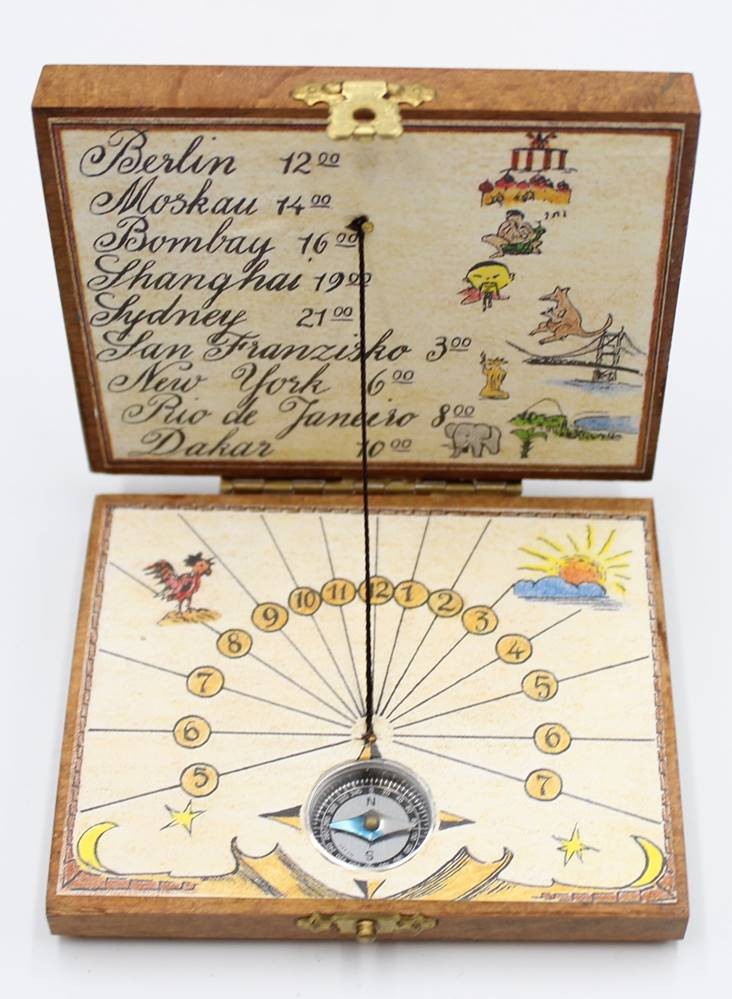 Berlin 12⁰⁰
Moskau 14⁰⁰
Bombay 16⁰⁰
Shanghai 19⁰⁰
Sydney 21⁰⁰
San Franzisko 3⁰⁰
New York 6⁰⁰
Rio de Janeiro 8⁰⁰
Dakar 10⁰⁰
5 6 7 8 9 10 11 12 1 2 3 4 5 6 7
N
S